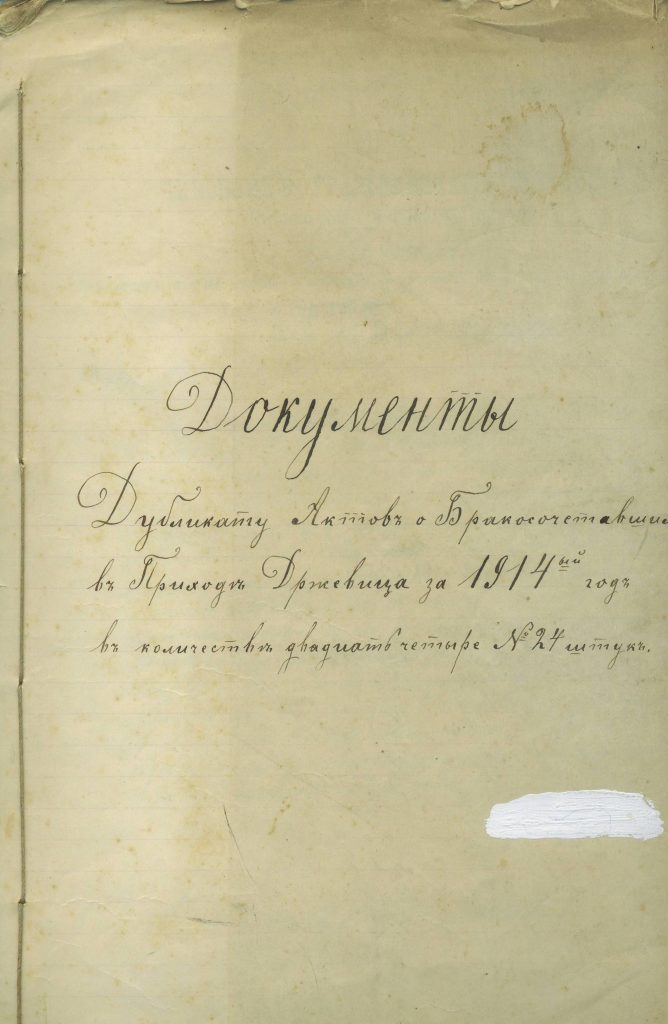 Документы
Дубликату Актовъ о Бракосочетавших
въ Приходѣ Држевица за 1914ый годъ
въ количествѣ двадцать четыре № 24 штукъ.